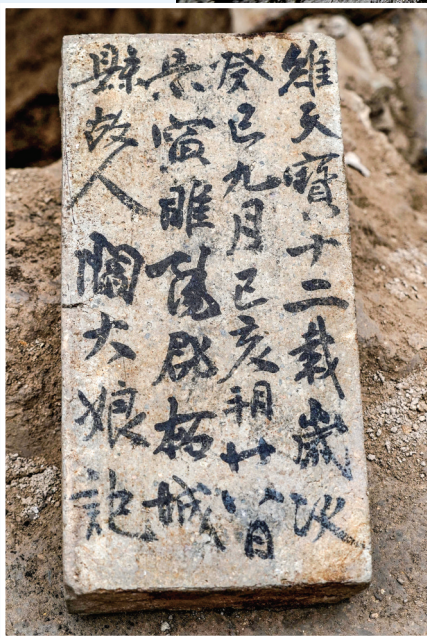 維天寶十二載歲次
癸巳九月己亥朔廿八日
景寅睢陽郡柘城
縣故人大娘記